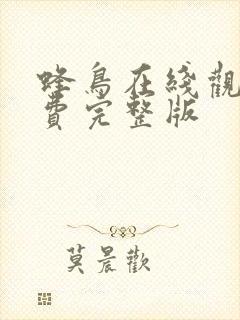 蜂鳥在綫觀
費完整版
莫晨歡